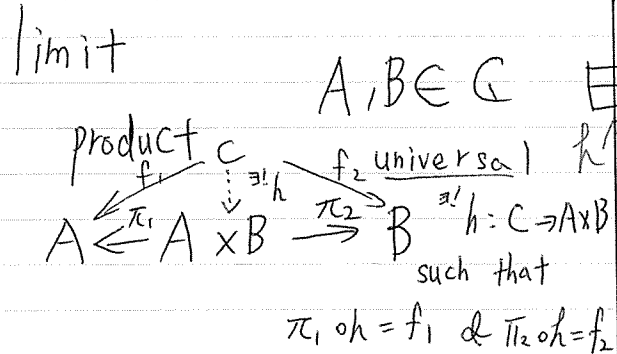 limit
A, B ∈ C
product C
f₁ ∃! h f₂ universal h'
A ←π₁ A × B →π₂ B ∃! h : C → A×B
such that
π₁ ∘ h = f₁ & π₂ ∘ h = f₂